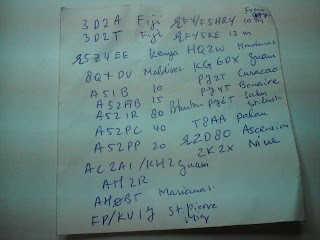 3D2A Fiji
3D2T Fiji 15 m
5Z4EE Kenya HQ2W Honduras
8Q7DV Maldives KG6DX Guam
A51B 10 PJ2T Curacao
A52AB 15 PJ4T Bonaire
A52IR 80 Bhutan PJ6T Saba
A52PC 40 T8AA Palau
A52PP 20 ZD8O Ascension
AC2AI/KH2 guam ZK2X Niue
AH2R
AHØBT Marianas
FP/KV1J St. Pierre
Miq